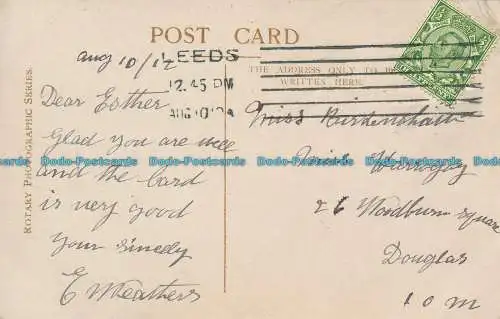 POST CARD
ROTARY PHOTOGRAPHIC SERIES.
Aug 10/12
LEEDS
12.45 PM
AUG 10 12
THE ADDRESS ONLY TO BE
WRITTEN HERE.
Dear Esther
Glad you are well
and the Card
is very good
Your Sincely
E Weathers
Miss
Miss
26 Woodburn Square
Douglas
I O M
Dodo-Postcards Dodo-Postcards Dodo-Postcards Dodo-Postcards Dodo-Postcards